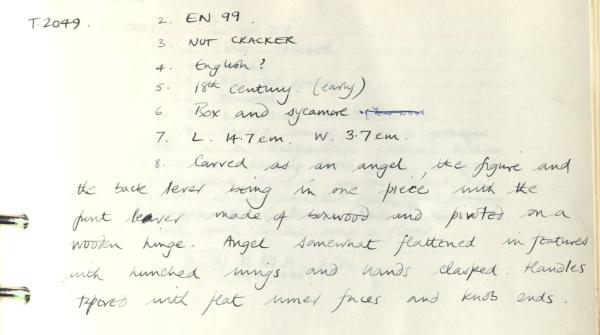 T.2049. 2. EN.99.
3. NUT CRACKER
4. English?
5. 18th century. (early)
6. Box and sycamore
7. L. 14.7cm. W. 3.7cm.
8. Carved as an angel, the figure and
the back lever being in one piece with the
front leaver made of boxwood and pivoted on a
wooden hinge. Angel somewhat flattened in features
with hunched wings and hands clasped. Handles
tapered with flat inner faces and knob ends.